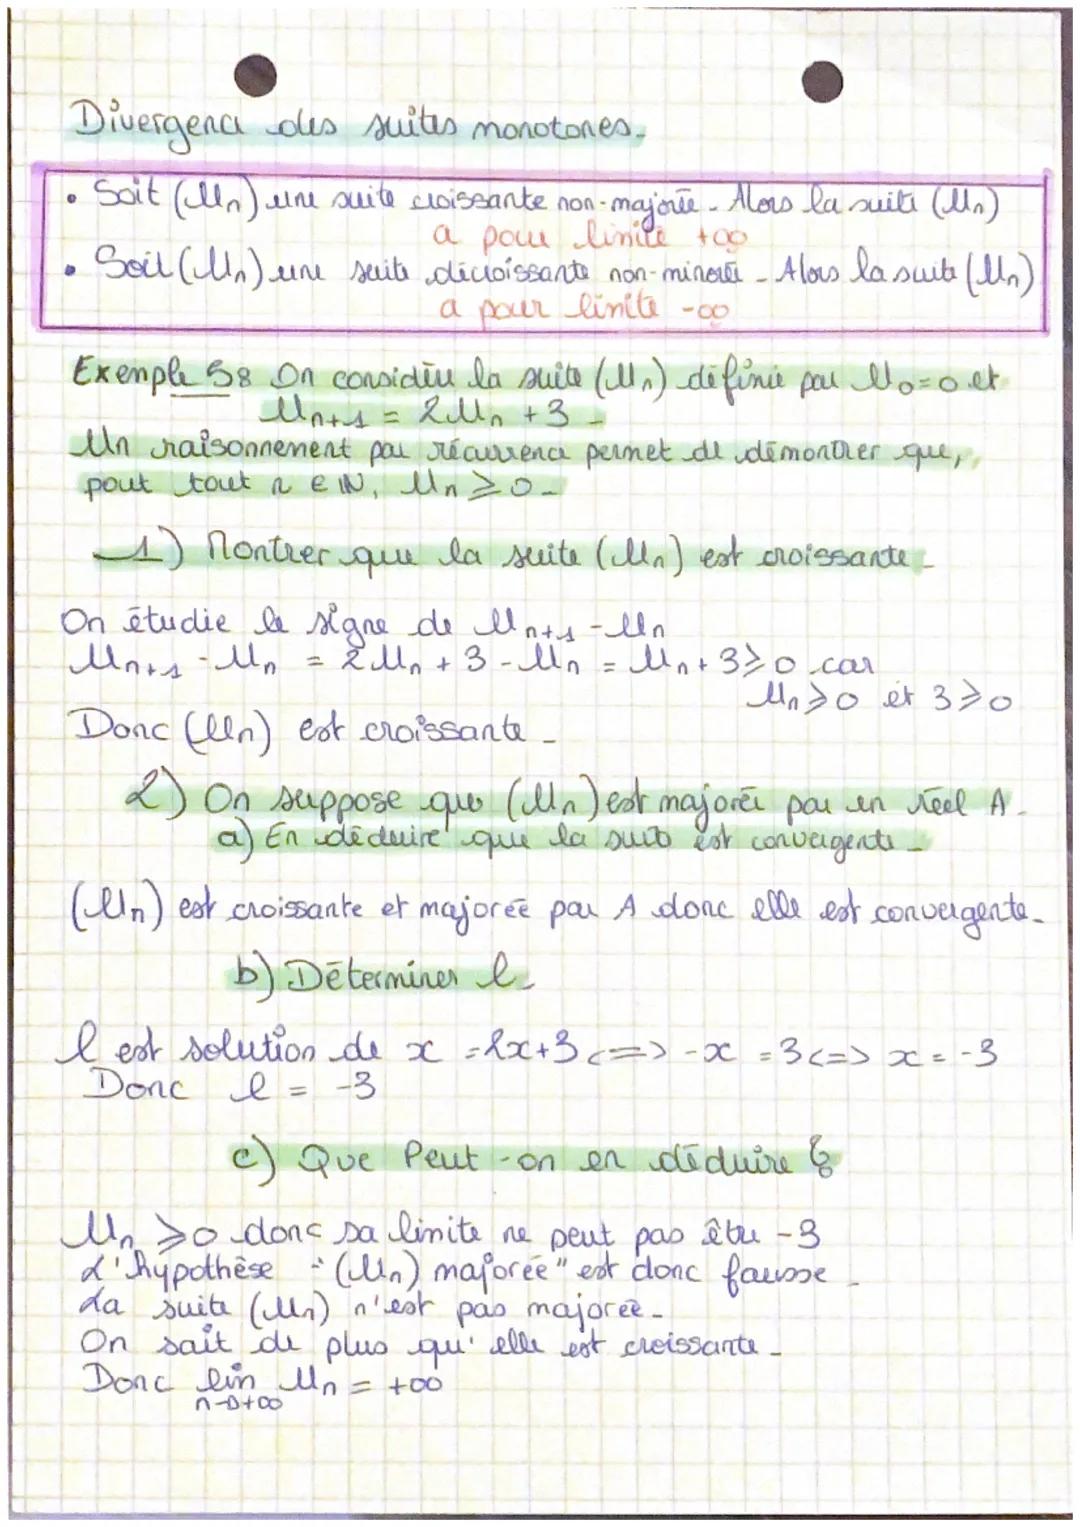 Divergence des suites monotones.
• Soit (Un) une suite croissante non-majorée. Alors la suite (Un)
a pour limite +∞
• Soit (Un) une suite décroissante non-minorée. Alors la suite (Un)
a pour limite -∞
Exemple 58 On considère la suite (Un) définie par U0=0 et
Un+1 = 2Un + 3.
Un raisonnement par récurrence permet de démontrer que,
pout tout n ∈ ℕ, Un ⩾ 0.
1) Montrer que la suite (Un) est croissante.
On étudie le signe de Un+1 - Un
Un+1 - Un = 2Un + 3 - Un = Un + 3 ⩾ 0 car
Un ⩾ 0 et 3 ⩾ 0
Donc (Un) est croissante.
2) On suppose que (Un) est majorée par un réel A.
a) En déduire que la suite est convergente.
(Un) est croissante et majorée par A donc elle est convergente.
b) Déterminer l.
l est solution de x = 2x+3 <=> -x = 3 <=> x = -3
Donc l = -3
c) Que Peut-on en déduire ?
Un ⩾ 0 donc sa limite ne peut pas être -3
L'hypothèse "(Un) majorée" est donc fausse.
La suite (Un) n'est pas majorée.
On sait de plus qu'elle est croissante.
Donc lim Un = +∞
n→+∞